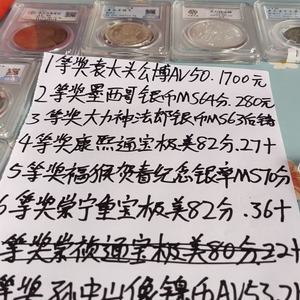 1等奖袁大头公博AV50.1700元
2等奖墨西哥银币MS64分.280元
3等奖大力神法郎银币MS63后铸
4等奖康熙通宝极美82分.27十
5等奖福猴贺春纪念银章MS70分
6等奖崇宁重宝极美82分.36十
等奖崇祯通宝极美80分.22十
等奖孙中山像镍币AV53.2